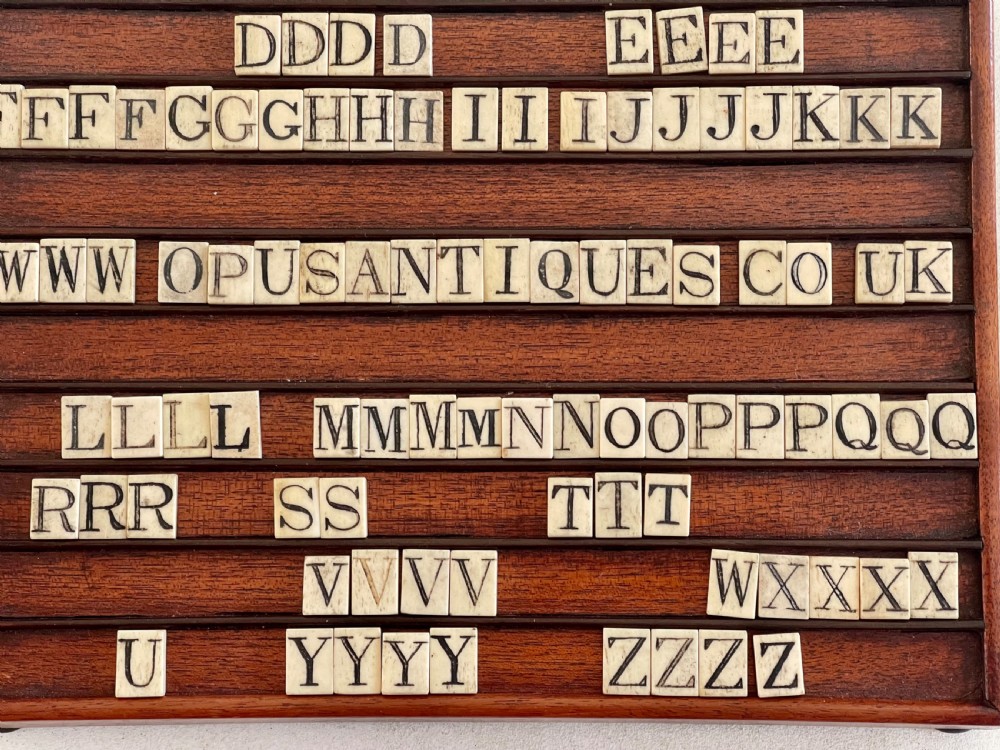 DDDD EEEE
FFFFGGGHHHII IJJJJKKK
WWW OPUSANTIQUES CO UK
LLLL MMMMNNOOPPPQQQ
RRR SS TTT
VVVV WXXXX
U YYYY ZZZZ